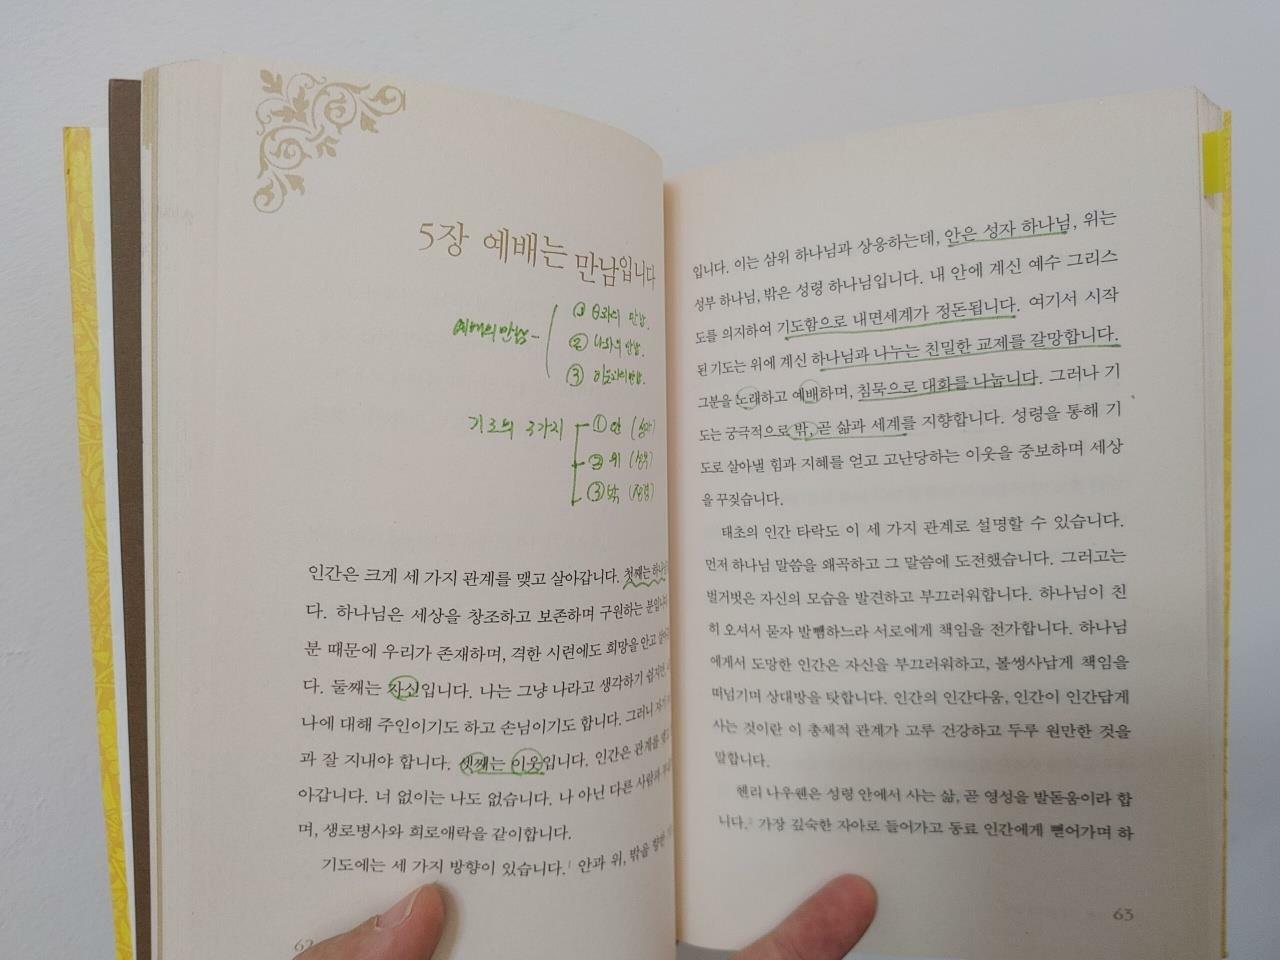 5장 예배는 만남입니다
예배의 만남
① 의 만남.
② 나와의 만남.
③ 이웃과의 만남.
기도의 3가지
① 안 (성자)
② 위 (성부)
③ 밖 (성령)
인간은 크게 세 가지 관계를 맺고 살아갑니다. 첫째는 하나님
다. 하나님은 세상을 창조하고 보존하며 구원하는 분입니다
분 때문에 우리가 존재하며, 격한 시련에도 희망을 안고
다. 둘째는 자신입니다. 나는 그냥 나라고 생각하기 쉽지만,
나에 대해 주인이기도 하고 손님이기도 합니다. 그러니 자기
과 잘 지내야 합니다. 셋째는 이웃입니다. 인간은 관계를 맺고
아갑니다. 너 없이는 나도 없습니다. 나 아닌 다른 사람과
며, 생로병사와 희로애락을 같이합니다.
기도에는 세 가지 방향이 있습니다.1 안과 위, 밖을 향한
62
입니다. 이는 삼위 하나님과 상응하는데, 안은 성자 하나님, 위는
성부 하나님, 밖은 성령 하나님입니다. 내 안에 계신 예수 그리스
도를 의지하여 기도함으로 내면세계가 정돈됩니다. 여기서 시작
된 기도는 위에 계신 하나님과 나누는 친밀한 교제를 갈망합니다.
그분을 노래하고 예배하며, 침묵으로 대화를 나눕니다. 그러나 기
도는 궁극적으로 밖, 곧 삶과 세계를 지향합니다. 성령을 통해 기
도로 살아낼 힘과 지혜를 얻고 고난당하는 이웃을 중보하며 세상
을 꾸짖습니다.
태초의 인간 타락도 이 세 가지 관계로 설명할 수 있습니다.
먼저 하나님 말씀을 왜곡하고 그 말씀에 도전했습니다. 그러고는
벌거벗은 자신의 모습을 발견하고 부끄러워합니다. 하나님이 친
히 오셔서 묻자 발뺌하느라 서로에게 책임을 전가합니다. 하나님
에게서 도망한 인간은 자신을 부끄러워하고, 볼썽사납게 책임을
떠넘기며 상대방을 탓합니다. 인간의 인간다움, 인간이 인간답게
사는 것이란 이 총체적 관계가 고루 건강하고 두루 원만한 것을
말합니다.
헨리 나우웬은 성령 안에서 사는 삶, 곧 영성을 발돋움이라 합
니다.2 가장 깊숙한 자아로 들어가고 동료 인간에게 뻗어가며 하
63